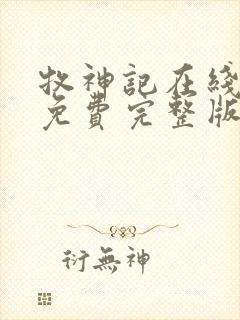 牧神記在綫
免費完整版
衍無神